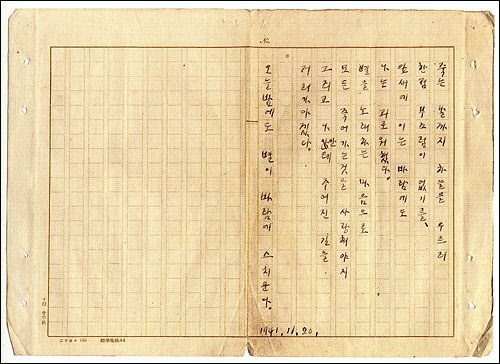 No.
죽는 날까지 하늘을 우르러
한점 부끄럼이 없기를,
잎새에 이는 바람에도
나는 괴로워했다.
별을 노래하는 마음으로
모든 죽어가는것을 사랑해야지
그리고 나안테 주어진 길을
거러가야겠다.
오늘밤에도 별이 바람에 스치운다.
1941.11.20.
標準規格A4